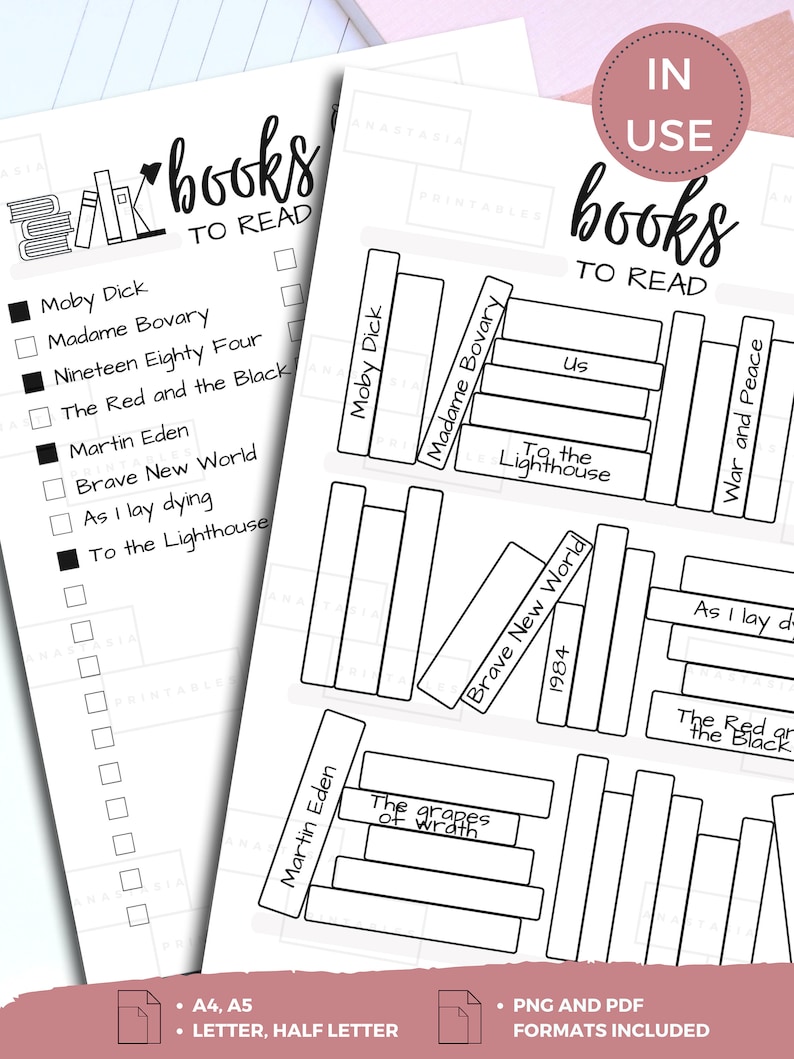 IN
USE
books
TO READ
Moby Dick
Madame Bovary
Nineteen Eighty Four
The Red and the Black
Martin Eden
Brave New World
As I lay dying
To the Lighthouse
books
TO READ
Moby Dick
Madame Bovary
Us
To the
Lighthouse
War and Peace
Brave New World
1984
As I lay dy
The Red an
the Black
Martin Eden
The grapes
of wrath
ANASTASIA
PRINTABLES
ANASTASIA
PRINTABLES
ANASTASIA
PRINTABLES
ANASTASIA
PRINTABLES
• A4, A5
• LETTER, HALF LETTER
• PNG AND PDF
FORMATS INCLUDED